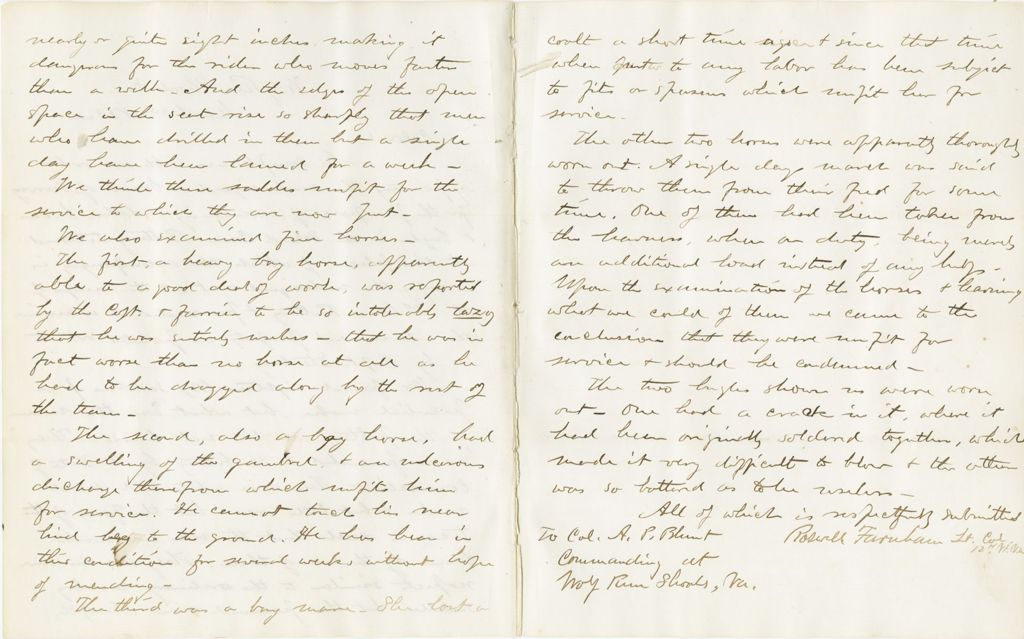 nearly or quite eight inches, making it
dangerous for the rider who moves faster
than a walk. And the edges of the open
space in the seat rise so sharply that men
who have drilled in them but a single
day have been lamed for a week -
We think these saddles unfit for the
service to which they are now put -
We also examined five horses -
The first, a heavy bay horse, apparently
able to a good deal of work, was reported
by the Capt. & farrier to be so intolerably lazy
that he was entirely useless - that he was in
fact worse than no horse at all as he
had to be dragged along by the rest of
the team -
The second, also a bay horse, had
a swelling of the gambrel & an ulcerous
discharge therefrom which unfits him
for service. He cannot touch his near
hind leg to the ground. He has been in
this condition for several weeks without hope
of mending -
The third was a bay mare. She lost a
coalt a short time since & since that time
when put to any labor has been subject
to fits or spasms which unfit her for
service -
The other two horses were apparently thoroughly
worn out. A single days march was said
to throw them from their feed for some
time. One of them had been taken from
the harness, when on duty, being merely
an additional load instead of any help -
Upon the examination of the horses & learning
what we could of them we came to the
conclusion that they were unfit for
service & should be condemned -
The two bugles shown us were worn
out - One had a crack in it, where it
had been originally soldered together, which
made it very difficult to blow & the other
was so battered as to be useless -
All of which is respectfully submitted
Roswell Farnham Lt. Col.
12th Vt.
To Col. A. P. Blunt
Commanding at
Wolf Run Shoals, Va.